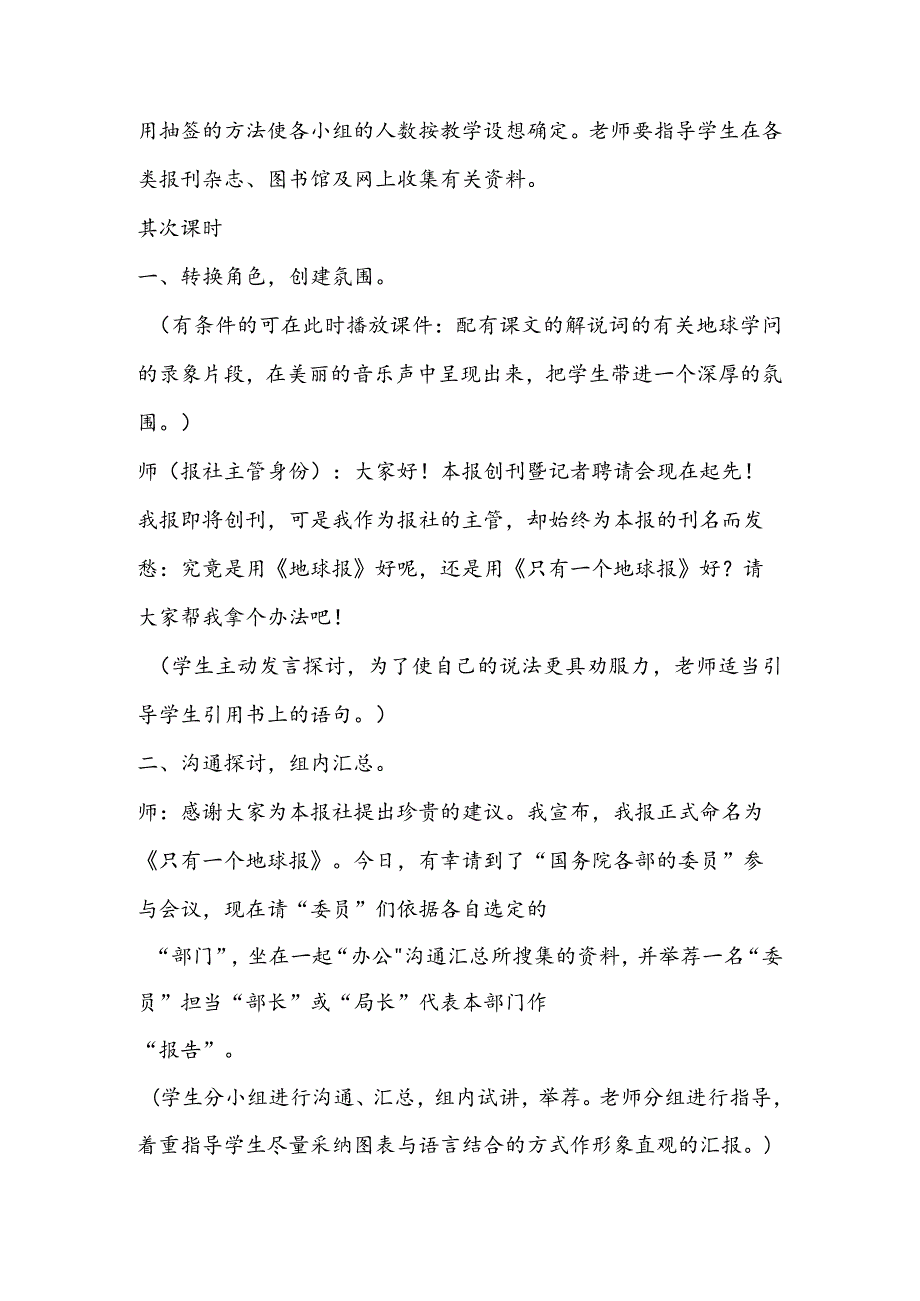 用抽签的方法使各小组的人数按教学设想确定。老师要指导学生在各
类报刊杂志、图书馆及网上收集有关资料。
其次课时
一、转换角色，创建氛围。
（有条件的可在此时播放课件：配有课文的解说词的有关地球学问
的录象片段，在美丽的音乐声中呈现出来，把学生带进一个深厚的氛
围。）
师（报社主管身份）：大家好！本报创刊暨记者聘请会现在起先！
我报即将创刊，可是我作为报社的主管，却始终为本报的刊名而发
愁：究竟是用《地球报》好呢，还是用《只有一个地球报》好？请
大家帮我拿个办法吧！
（学生主动发言探讨，为了使自己的说法更具劝服力，老师适当引
导学生引用书上的语句。）
二、沟通探讨，组内汇总。
师：感谢大家为本报社提出珍贵的建议。我宣布，我报正式命名为
《只有一个地球报》。今日，有幸请到了“国务院各部的委员”参
与会议，现在请“委员”们依据各自选定的
“部门”，坐在一起“办公"沟通汇总所搜集的资料，并举荐一名“委
员”担当“部长”或“局长”代表本部门作
“报告”。
(学生分小组进行沟通、汇总，组内试讲，举荐。老师分组进行指导，
着重指导学生尽量采纳图表与语言结合的方式作形象直观的汇报。)